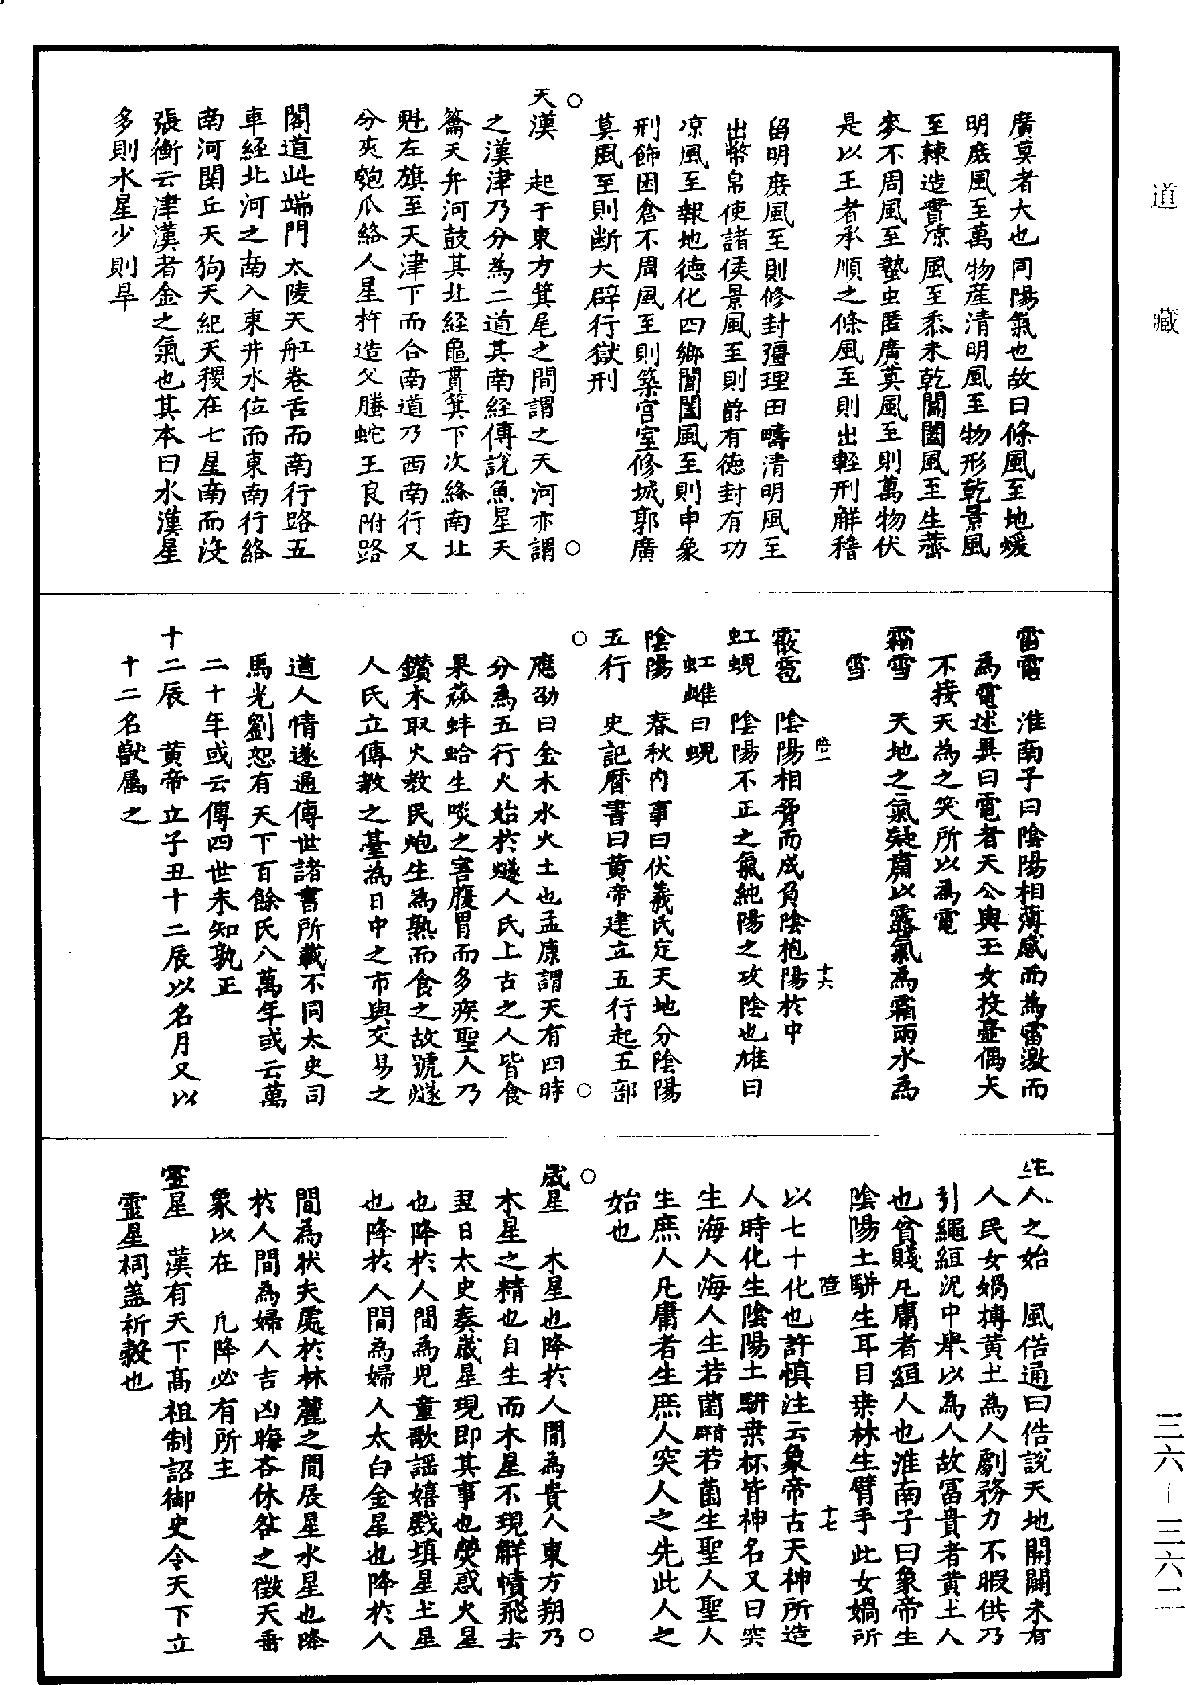 道藏
三六—三六二
廣莫者大也同陽氣也故曰條風至地煖
明庶風至萬物產清明風至物形乾景風
至棘造實涼風至黍禾乾閶闔風至生薺
麥不周風至蟄虫匿廣莫風至則萬物伏
是以王者承順之條風至則出輕刑解稽
留明庶風至則修封彊理田疇清明風至
出幣帛使諸侯景風至則爵有德封有功
涼風至報地德化四鄉閶闔風至則申象
刑飾囷倉不周風至則築宮室修城郭廣
莫風至則断大辟行獄刑
天漢　起于東方箕尾之間謂之天河亦謂
之漢津乃分為二道其南經傳說魚星天
籥天弁河鼓其北經龜貫箕下次絡南北
魁左旗至天津下而合南道乃西南行又
分夾匏爪絡人星杵造父螣蛇王良附路
閣道此端門太陵天舡卷舌而南行路五
車經北河之南入東井水位而東南行絡
南河闕丘天狗天紀天稷在七星南而沒
張衡云津漢者金之氣也其本曰水漢星
多則水星少則旱
雷電　淮南子曰陰陽相薄感而為雷激而
為電述異曰電者天公與玉女投壺偶矢
不接天為之笑所以為電
霜雪　天地之氣凝肅以露氣為霜雨水為
雪
霰雹　陰陽相脅而成負陰抱陽於中
虹蜺　陰陽不正之氣純陽之攻陰也雄曰
虹雌曰蜺
陰陽　春秋內事曰伏羲氏定天地分陰陽
五行　史記曆書曰黃帝建立五行起五部
應劭曰金木水火土也孟康謂天有四時
分為五行火始於燧人氏上古之人皆食
果蓏蚌蛤生啖之害腹胃而多疾聖人乃
鑽木取火教民炮生為熟而食之故號燧
人氏立傳教之臺為日中之市與交易之
道人情遂通傳世諸書所載不同太史司
馬光劉恕有天下百餘氏八萬年或云萬
二十年或云傳四世未知孰正
十二辰　黃帝立子丑十二辰以名月又以
十二名獸屬之
生人之始　風俗通曰俗說天地開闢未有
人民女媧摶黃土為人劇務力不暇供乃
引繩縆況中舉以為人故冨貴者黃土人
也貧賤凡庸者縆人也淮南子曰象帝生
陰陽土駢生耳目桒林生臂手此女媧所
以七十化也許慎注云象帝古天神所造
人時化生陰陽土駢桒林皆神名又曰突
生海人海人生若菌若菌生聖人聖人
生庶人凡庸者生庶人突人之先此人之
始也
歲星　木星也降於人間為貴人東方朔乃
木星之精也自生而木星不現解憤飛去
翌日太史奏歲星現即其事也熒惑火星
也降於人間為兒童歌謡嬉戲填星土星
也降於人間為婦人太白金星也降於人
間為狀夫處於林麓之間辰星水星也降
於人間為婦人吉凶晦吝休咎之徵天垂
象以在　凡降必有所主
靈星　漢有天下高祖制詔御史令天下立
靈星祠蓋祈穀也
十六
十七